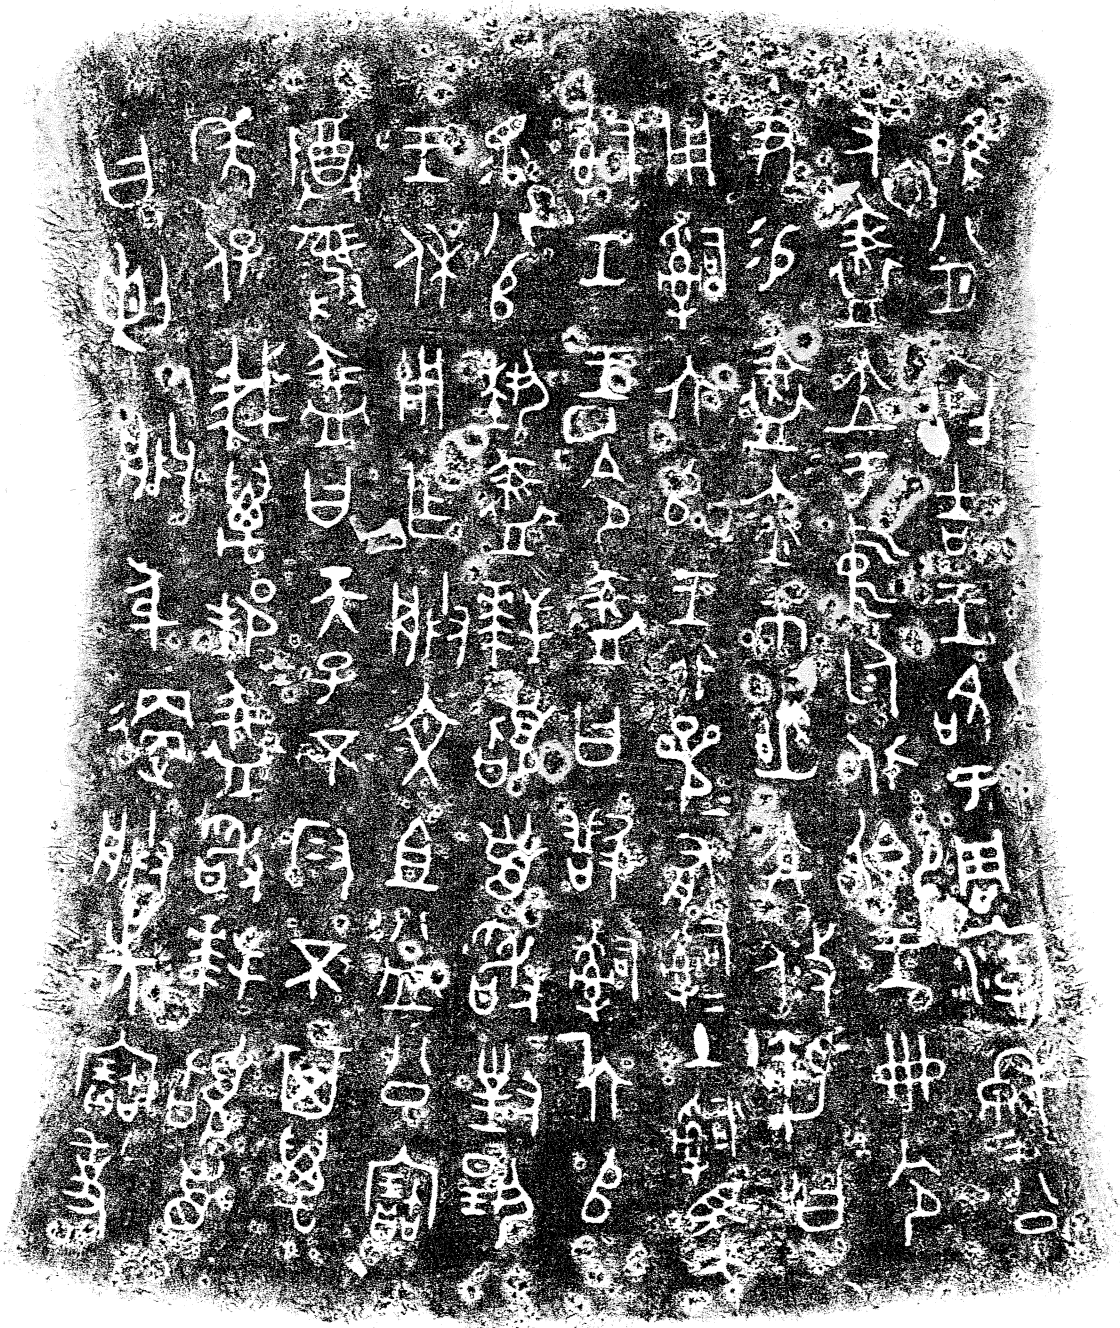 唯八月初吉王各于周廟穆公
又盠立于中廷北鄉王冊令
尹易盠赤巿幽亢攸勒曰
用𤔲六𠂤王行參有𤔲𤔲土𤔲馬
𤔲工王令盠曰𤔲六𠂤
眔八𠂤埶盠拜𩒨首敢對揚
王休用乍朕文且益公寶
尊彝盠曰天子不叚不其萬
年保我萬邦盠敢拜𩒨首
曰剌剌朕身更朕先寶事